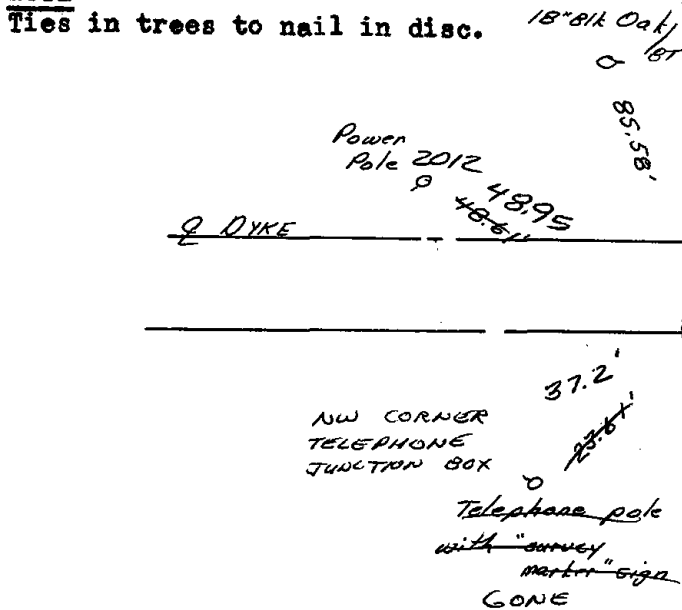 Ties in trees to nail in disc.
18" Blk Oak/
BT
85.58'
Power
Pole 2012
48.95
48.61'
℄ DYKE
37.2'
NW CORNER
TELEPHONE
JUNCTION BOX
Telephone pole
with "survey
marker" sign
GONE